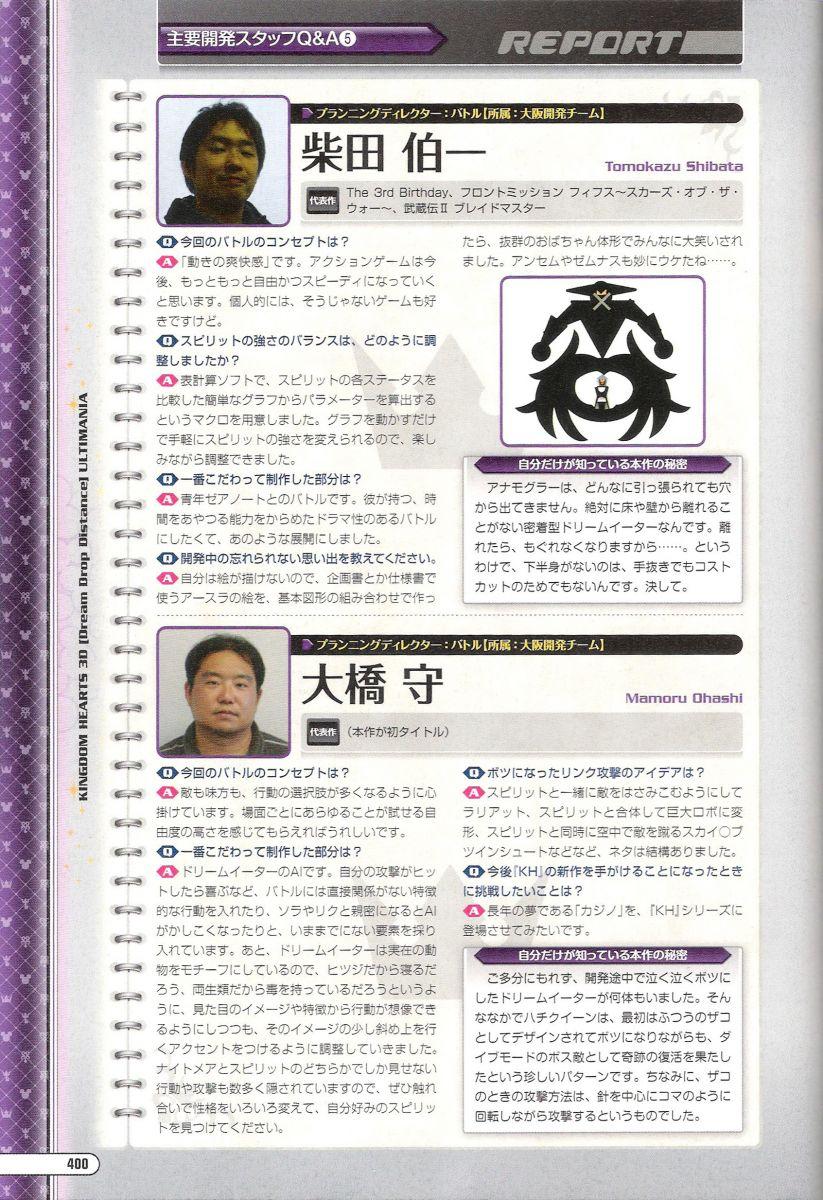 主要開発スタッフQ&A❺
REPORT
プランニングディレクター：バトル【所属：大阪開発チーム】
柴田 伯一
Tomokazu Shibata
代表作
The 3rd Birthday、フロントミッション フィフス〜スカーズ・オブ・ザ・
ウォー〜、武蔵伝Ⅱ ブレイドマスター
Q 今回のバトルのコンセプトは？
A 「動きの爽快感」です。アクションゲームは今
後、もっともっと自由かつスピーディになっていく
と思います。個人的には、そうじゃないゲームも好
きですけど。
Q スピリットの強さのバランスは、どのように調
整しましたか？
A 表計算ソフトで、スピリットの各ステータスを
比較した簡単なグラフからパラメーターを算出する
というマクロを用意しました。グラフを動かすだけ
で手軽にスピリットの強さを変えられるので、楽し
みながら調整できました。
Q 一番こだわって制作した部分は？
A 青年ゼアノートとのバトルです。彼が持つ、時
間をあやつる能力をからめたドラマ性のあるバトル
にしたくて、あのような展開にしました。
Q 開発中の忘れられない思い出を教えてください。
A 自分は絵が描けないので、企画書とか仕様書で
使うアースラの絵を、基本図形の組み合わせで作っ
たら、抜群のおばちゃん体形でみんなに大笑いされ
ました。アンセムやゼムナスも妙にウケたね……。
自分だけが知っている本作の秘密
アナモグラーは、どんなに引っ張られても穴
から出てきません。絶対に床や壁から離れるこ
とがない密着型ドリームイーターなんです。離
れたら、もぐれなくなりますから……。という
わけで、下半身がないのは、手抜きでもコスト
カットのためでもないんです。決して。
プランニングディレクター：バトル【所属：大阪開発チーム】
大橋 守
Mamoru Ohashi
代表作
（本作が初タイトル）
Q 今回のバトルのコンセプトは？
A 敵も味方も、行動の選択肢が多くなるように心
掛けています。場面ごとにあらゆることが試せる自
由度の高さを感じてもらえればうれしいです。
Q 一番こだわって制作した部分は？
A ドリームイーターのAIです。自分の攻撃がヒッ
トしたら喜ぶなど、バトルには直接関係がない特徴
的な行動を入れたり、ソラやリクと親密になるとAI
がかしこくなったりと、いままでにない要素を採り
入れています。あと、ドリームイーターは実在の動
物をモチーフにしているので、ヒツジだから寝るだ
ろう、両生類だから毒を持っているだろうというよ
うに、見た目のイメージや特徴から行動が想像でき
るようにしつつも、そのイメージの少し斜め上を行
くアクセントをつけるように調整していきました。
ナイトメアとスピリットのどちらかでしか見せない
行動や攻撃も数多く隠されていますので、ぜひ触れ
合いで性格をいろいろ変えて、自分好みのスピリッ
トを見つけてください。
Q ボツになったリンク攻撃のアイデアは？
A スピリットと一緒に敵をはさみこむようにして
ラリアット、スピリットと合体して巨大ロボに変
形、スピリットと同時に空中で敵を蹴るスカイ○ブ
ツインシュートなどなど、ネタは結構ありました。
Q 今後『KH』の新作を手がけることになったとき
に挑戦したいことは？
A 長年の夢である「カジノ」を、『KH』シリーズに
登場させてみたいです。
自分だけが知っている本作の秘密
ご多分にもれず、開発途中で泣く泣くボツに
したドリームイーターが何体もいました。そん
ななかでハチクイーンは、最初はふつうのザコ
としてデザインされてボツになりながらも、ダ
イブモードのボス敵として奇跡の復活を果たし
たという珍しいパターンです。ちなみに、ザコ
のときの攻撃方法は、針を中心にコマのように
回転しながら攻撃するというものでした。
KINGDOM HEARTS 3D [Dream Drop Distance] ULTIMANIA
400